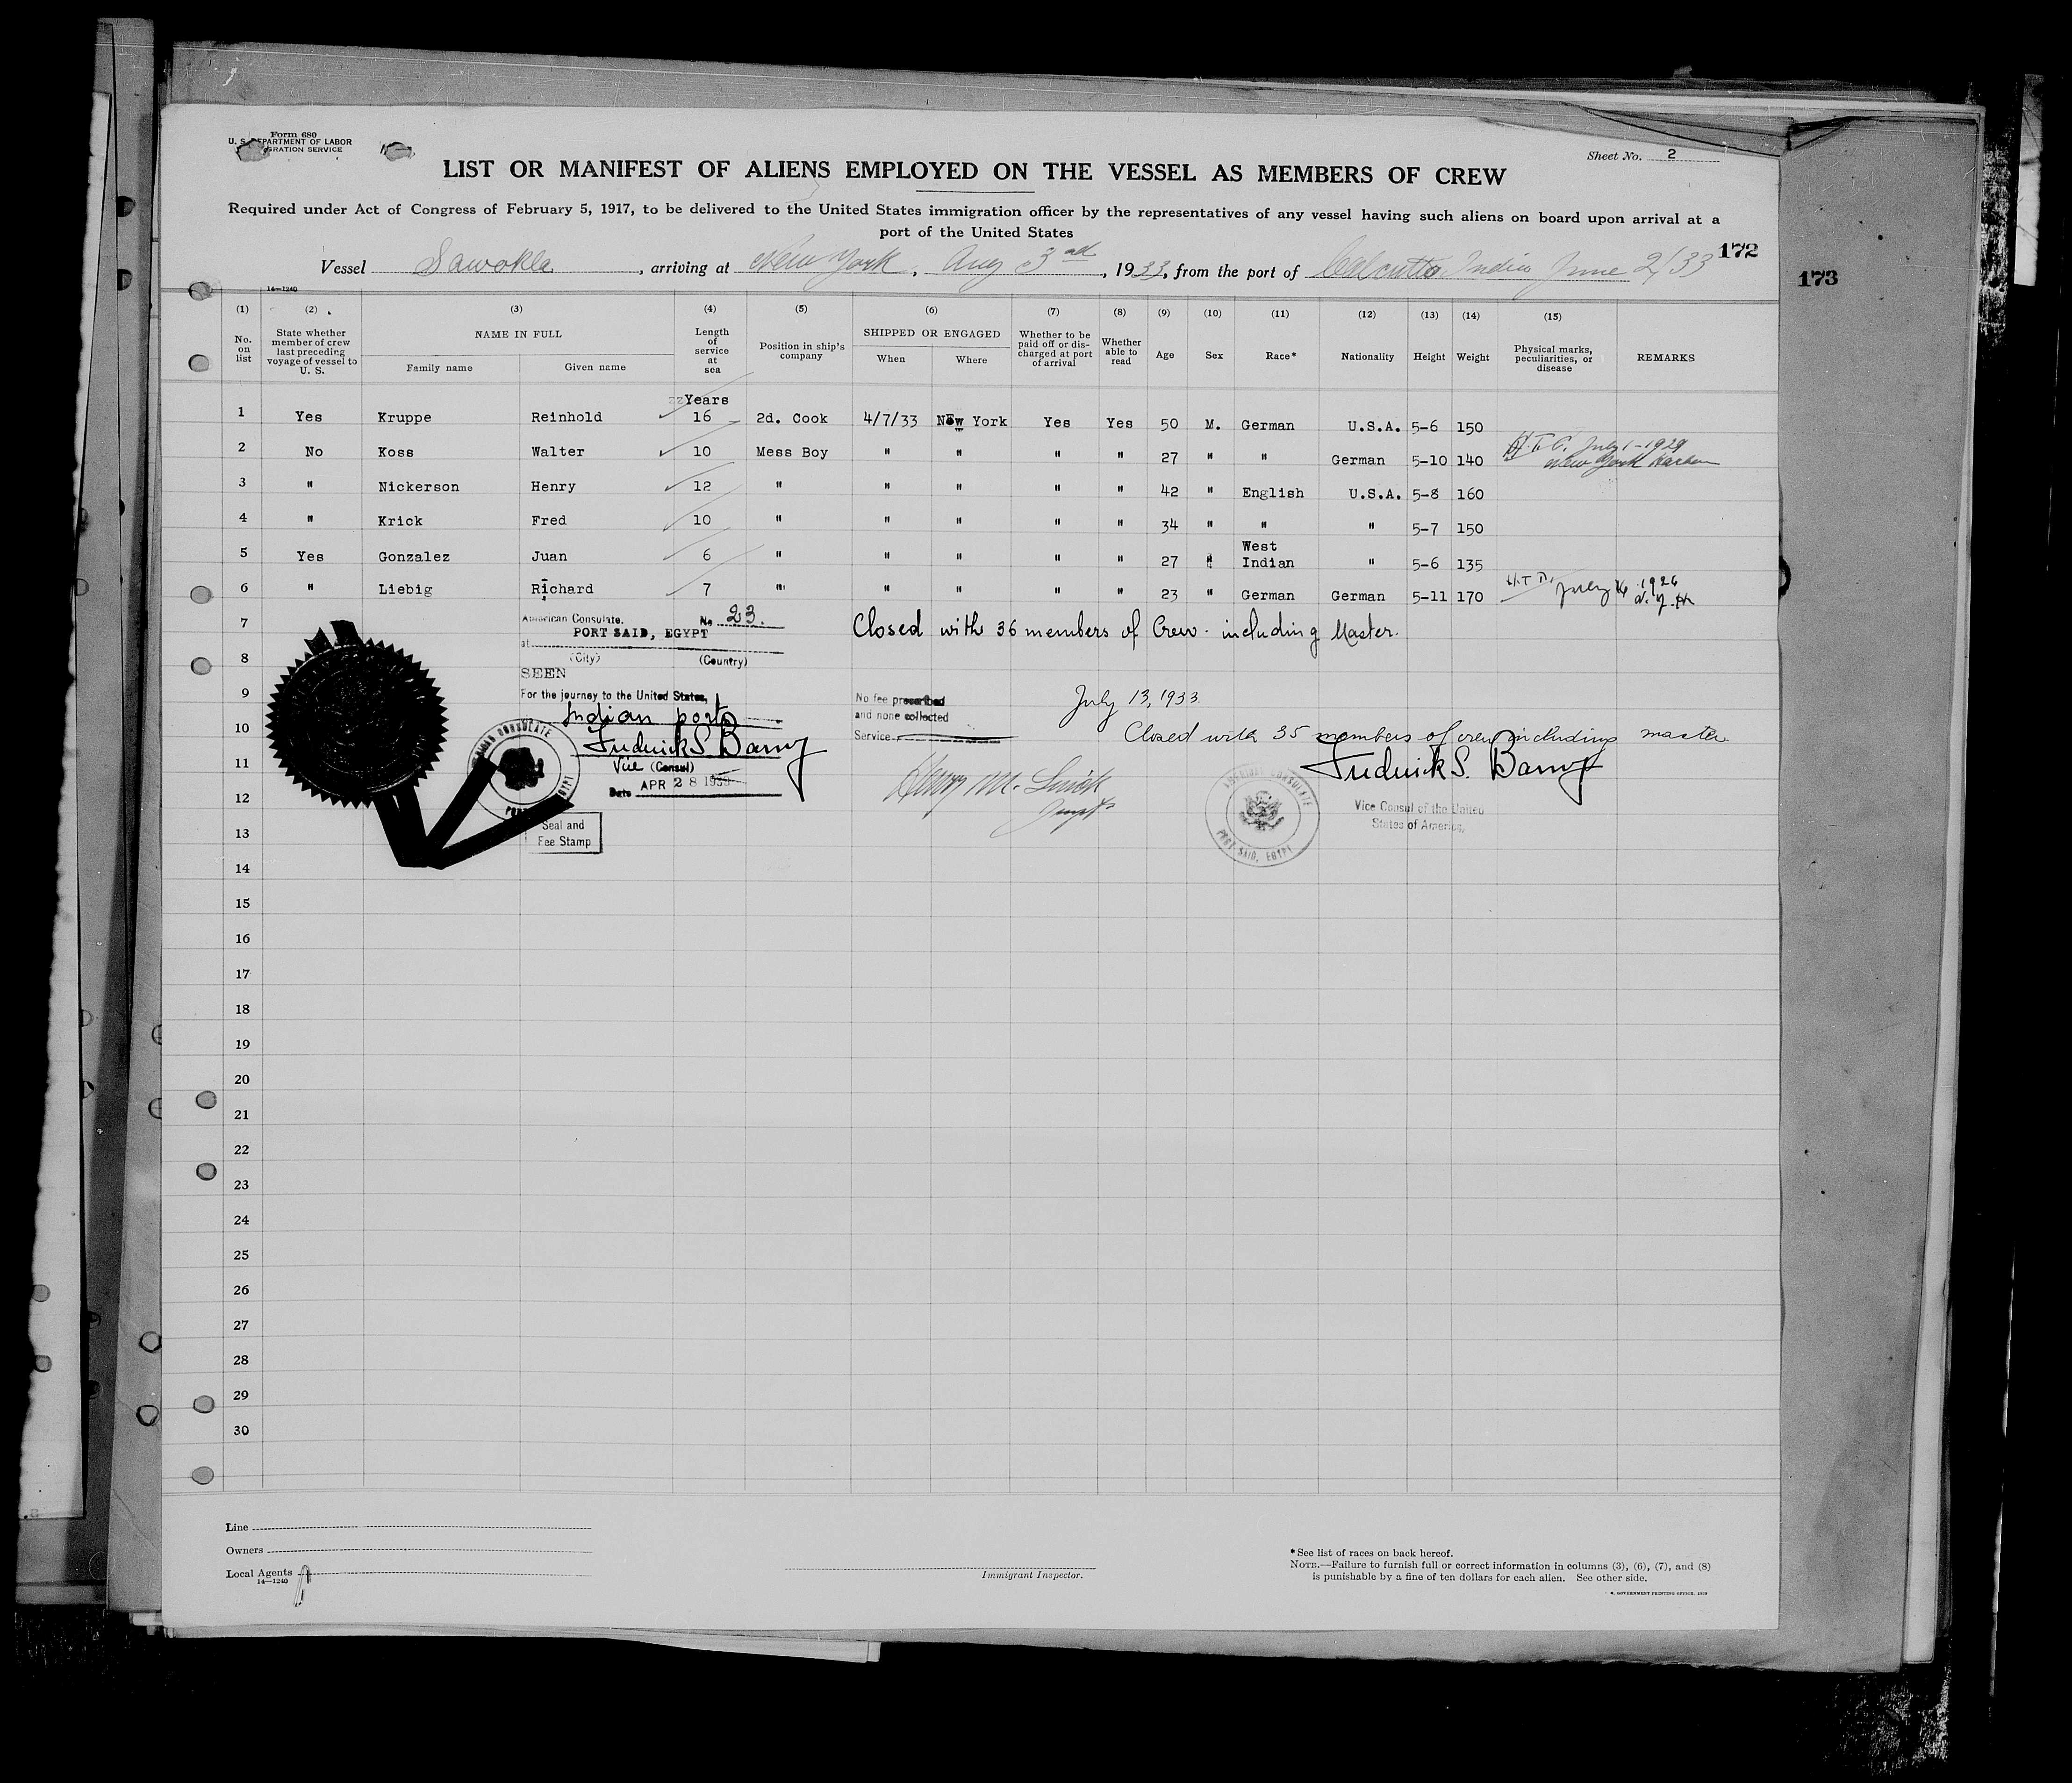 Form 680
U. S. DEPARTMENT OF LABOR
GRATION SERVICE
Sheet No. 2
LIST OR MANIFEST OF ALIENS EMPLOYED ON THE VESSEL AS MEMBERS OF CREW
Required under Act of Congress of February 5, 1917, to be delivered to the United States immigration officer by the representatives of any vessel having such aliens on board upon arrival at a
port of the United States
172
173
Vessel Sawokla, arriving at New York, Aug 3rd, 1933, from the port of Calcutta India June 2/33
14—1240
(1) (2) (3) (4) (5) (6) (7) (8) (9) (10) (11) (12) (13) (14) (15)
No. on list State whether member of crew last preceding voyage of vessel to U. S. NAME IN FULL Family name Given name Length of service at sea Position in ship's company SHIPPED OR ENGAGED When Where Whether to be paid off or discharged at port of arrival Whether able to read Age Sex Race* Nationality Height Weight Physical marks, peculiarities, or disease REMARKS
Years
1 Yes Kruppe Reinhold 16 2d. Cook 4/7/33 New York Yes Yes 50 M. German U.S.A. 5-6 150
2 No Koss Walter 10 Mess Boy " " " " 27 " " German 5-10 140 July 1-1929
New York Harbor
3 " Nickerson Henry 12 " " " " " 42 " English U.S.A. 5-8 160
4 " Krick Fred 10 " " " " " 34 " " " 5-7 150
5 Yes Gonzalez Juan 6 " " " " " 27 " West Indian " 5-6 135
6 " Liebig Richard 7 " " " " " 23 " German German 5-11 170 July 1926
7 American Consulate. No 23.
PORT SAID, EGYPT
Closed with 36 members of Crew including Master.
at
8 (City) (Country)
SEEN
9 For the journey to the United States,
Indian ports
No fee prescribed
and none collected
July 13, 1933
10 Service
Closed with 35 members of crew including master
Frederick S. Barny
Vice (Consul)
Frederick S. Barny
11 Date APR 28 1933
Henry M.
12 Vice Consul of the United
States of America.
AMERICAN CONSULATE
PORT SAID, EGYPT
13 Seal and
Fee Stamp
14
15
16
17
18
19
20
21
22
23
24
25
26
27
28
29
30
Line
Owners
Local Agents
14—1240
Immigrant Inspector.
*See list of races on back hereof.
NOTE.—Failure to furnish full or correct information in columns (3), (6), (7), and (8)
is punishable by a fine of ten dollars for each alien. See other side.
GOVERNMENT PRINTING OFFICE